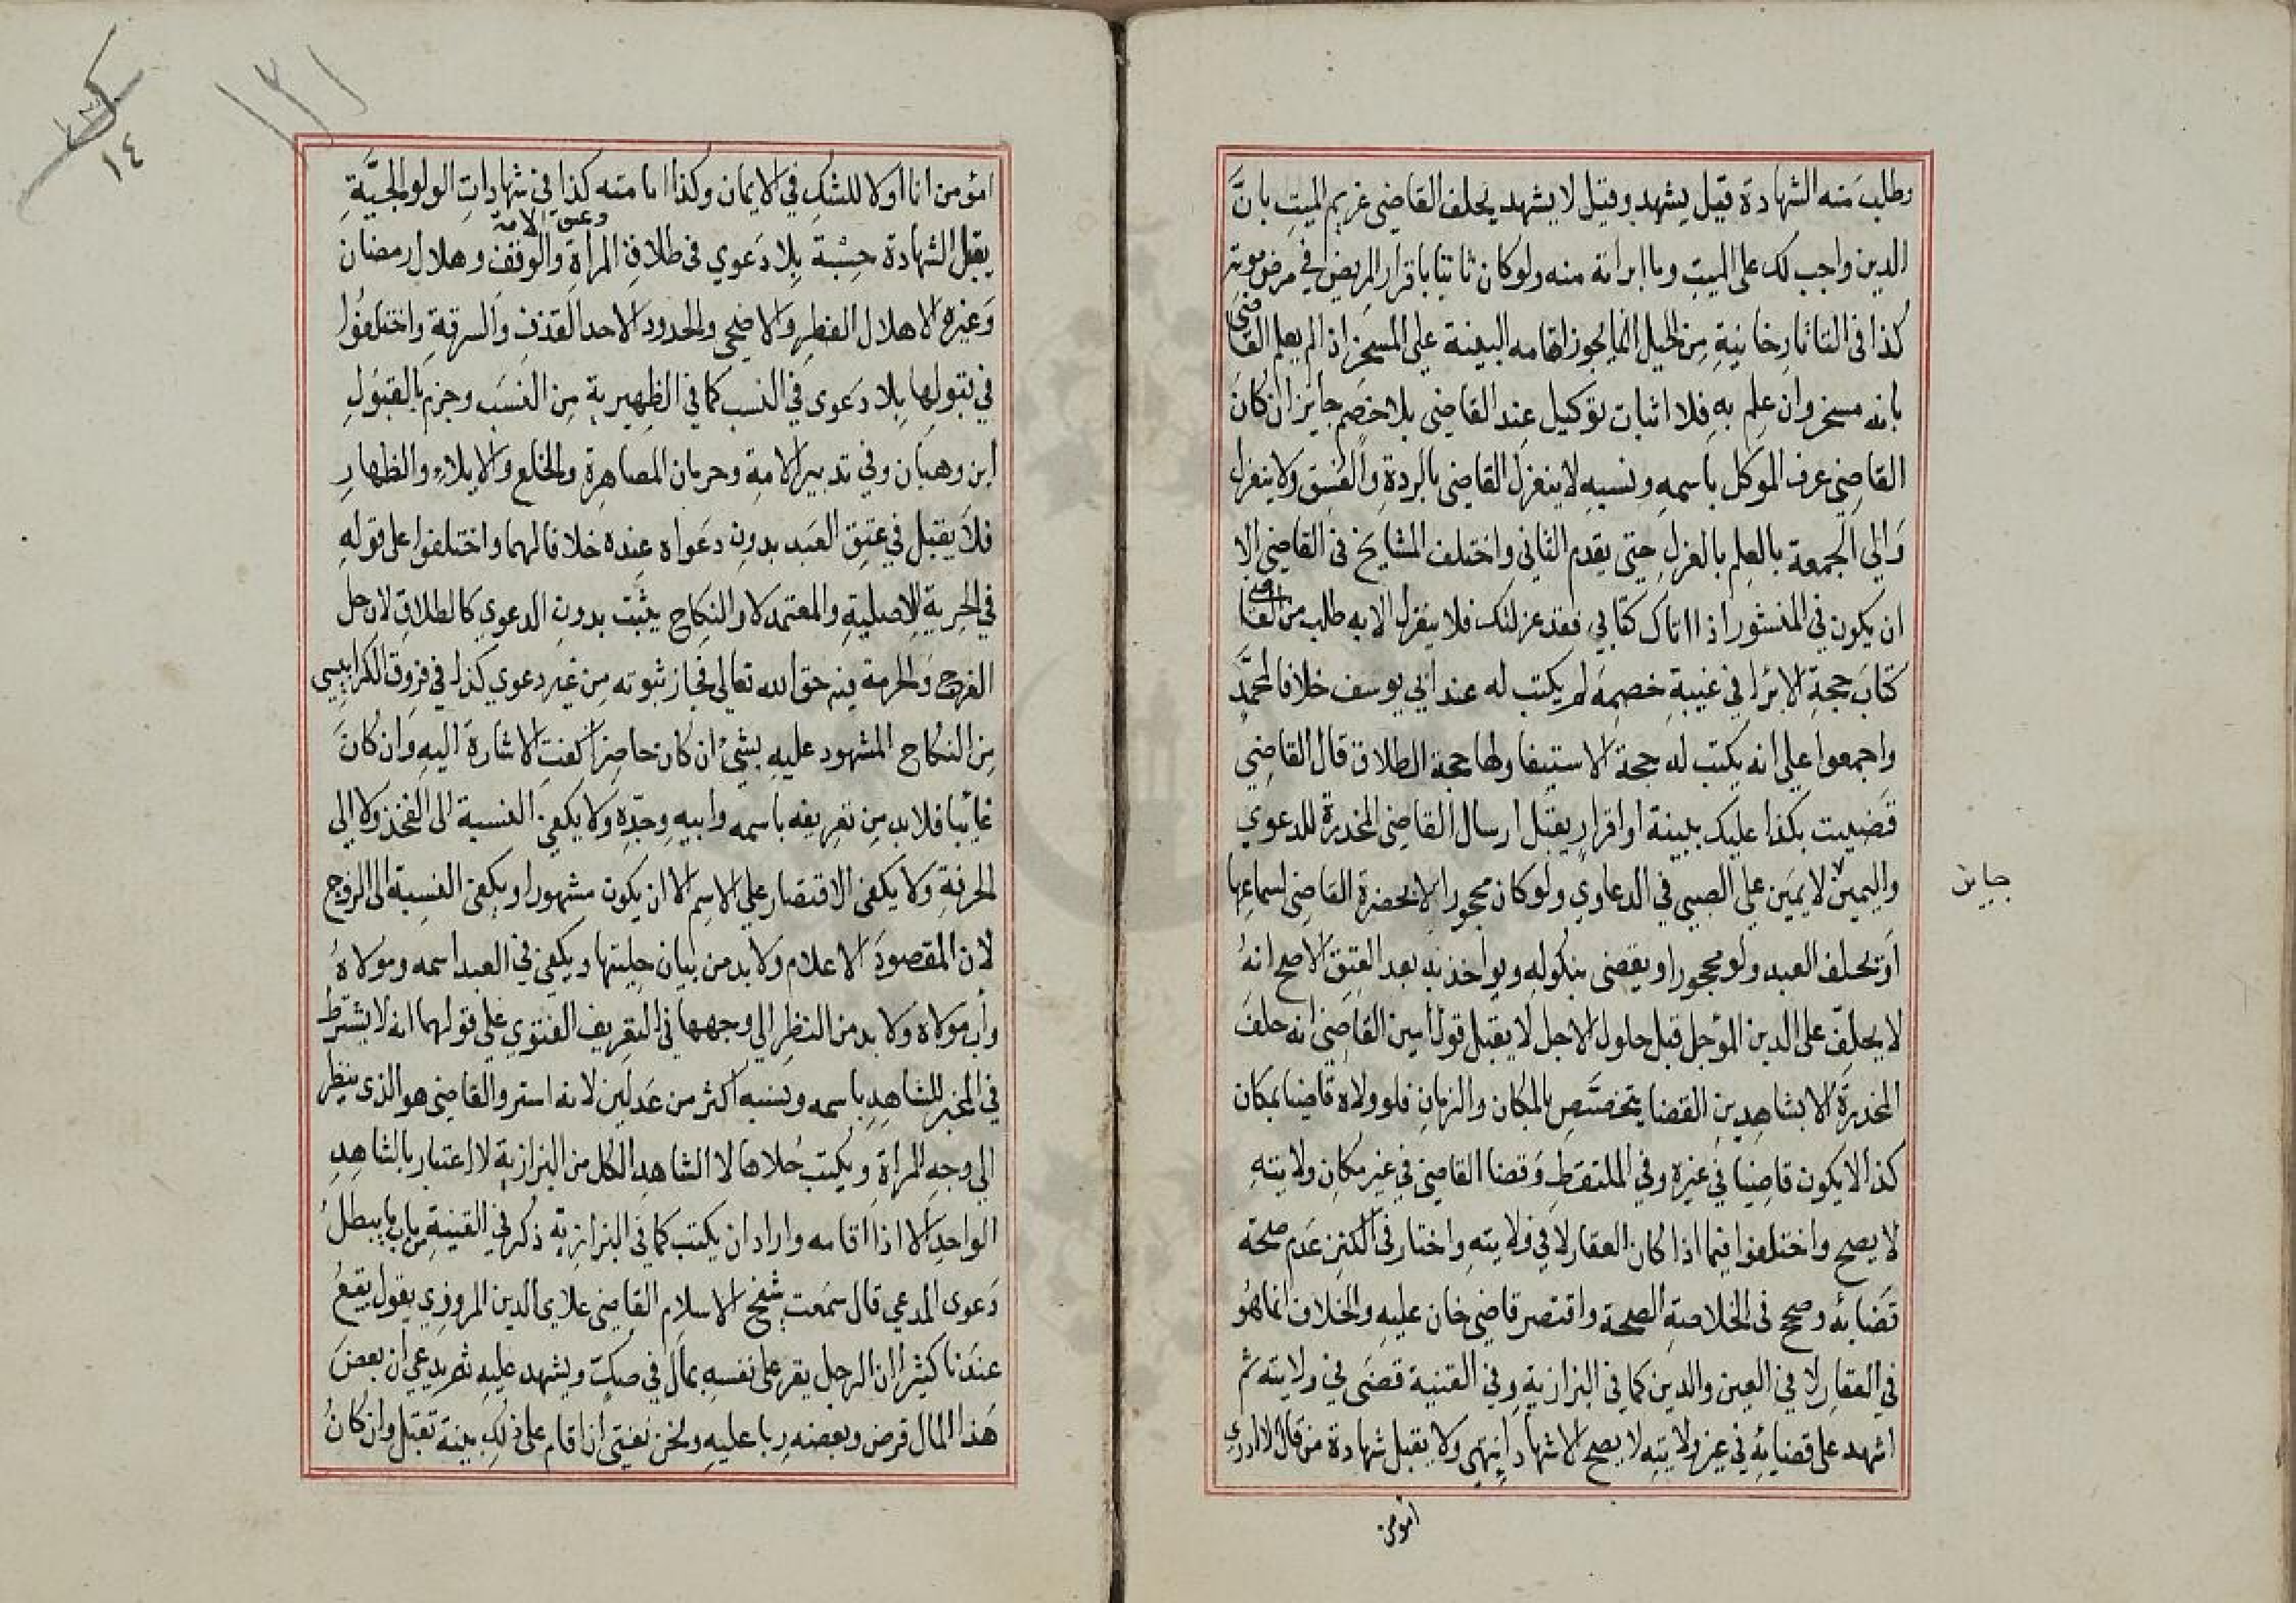 وطلب منه الشهادة قيل يشهد وقيل لا يشهد يحلف القاضي غريم الميت بان
الدين واجب لك على الميت وما ابراته منه ولو كان ثابتا باقرار المريض في مرض موته
كذا في التاتارخانية من الحيل انما يجوز اقامه البينة على المسخر اذا لم يعلم القاضي
بانه مسخر وان علم به فلا اثبات توكيل عند القاضي بلا خصم جايز ان كان
القاضي عرف الموكل باسمه ونسبه لا ينعزل القاضي بالردة والفسق ولا ينعزل
والي الجمعة بالعلم بالعزل حتى يقدم الثاني واختلف المشايخ في القاضي الا
ان يكون في المنشور اذا اتاك كتابي فقد عزلتك فلا ينعزل الا به طلب من القاضي
كتاب حجة الابرا في غيبة خصمه لم يكتب له عند ابي يوسف خلافا لمحمد
واجمعوا على انه يكتب له حجة الاستيفا ولها حجة الطلاق قال القاضي
قضيت بكذا عليك ببينة او اقرار يقبل ارسال القاضي المخدرة للدعوي
واليمين لا يمين على الصبي في الدعاوي ولو كان محجورا لا بحضرة القاضي لسماعها
جايز
او يحلف العبد ولو محجورا ويقضى بنكوله ويواخذ به بعد العتق الاصح انه
لا يحلف على الدين المؤجل قبل حلول الاجل لا يقبل قول امين القاضي انه حلف
المخدرة الا بشاهدين القضا يتخصص بالمكان والزمان فلو ولاه قاضيا بمكان
كذا لا يكون قاضيا في غيره وفي الملتقط وقضا القاضي في غير مكان ولايته
لا يصح واختلفوا فيما اذا كان العقار لا في ولايته واختار في الكنز عدم صحة
قضائه وصحح في الخلاصة الصحة واقتصر قاضي خان عليه والخلاف انما هو
في العقار لا في العين والدين كما في البزازية وفي القنية قضى في ولايته ثم
اشهد على قضائه في غير ولايته لا يصح الاشهاد انتهى ولا يقبل شهادة من قال لا ادري
امومن
١٣١
١٤
امؤمن انا اولا للشك في الايمان وكذا امامته كذا في شهادات الولوالجية
وعتق الامة
يقبل الشهادة حسبة بلا دعوي في طلاق المراة والوقف وهلال رمضان
وغيره الا هلال الفطر والاضحى والحدود الا حد القذف والسرقة واختلفوا
في قبولها بلا دعوى في النسب كما في الظهيرية من النسب وجزم بالقبول
ابن وهبان وفي تدبير الامة وحرمان المصاهرة والخلع والايلاء والظهار
فلا يقبل في عتق العبد بدون دعواه عنده خلافا لهما واختلفوا على قوله
في الحرية الاصلية والمعتمد لا والنكاح يثبت بدون الدعوي كالطلاق لان حل
الفرج والحرمة فيه حق الله تعالى فجاز ثبوته من غير دعوي كذا في فروق الكرابيسي
من النكاح المشهود عليه بشئ ان كان حاضرا كفت الاشارة اليه وان كان
غائبا فلا بد من تعريفه باسمه وابيه وجده ولا يكفي النسبة الى الفخذ ولا الى
الحرفة ولا يكفي الاقتصار على الاسم الا ان يكون مشهورا ويكفي النسبة الى الزوج
لان المقصود الاعلام ولا بد من بيان حليتها ويكفي في العبد اسمه ومولاه
واب مولاه ولا بد من النظر الى وجهها في التعريف الفتوي على قولهما انه لا يشترط
في المخبر للشاهد باسمه ونسبه اكثر من عدلين لانه استر والقاضي هو الذي ينظر
الى وجه المراة ويكتب حلاها لا الشاهد الكل من البزازية لا اعتبار بالشاهد
الواحد الا اذا اقامه واراد ان يكتب كما في البزازية ذكر في القنية من باب ما يبطل
دعوى المدعي قال سمعت شيخ الاسلام القاضي علاي الدين المروزي يقول يقع
عندنا كثيرا ان الرجل يقر على نفسه بمال في صك ويشهد عليه ثم يدعي ان بعض
هذا المال قرض وبعضه ربا عليه ونحن نفتي ان اقام على ذلك بينة تقبل وان كان